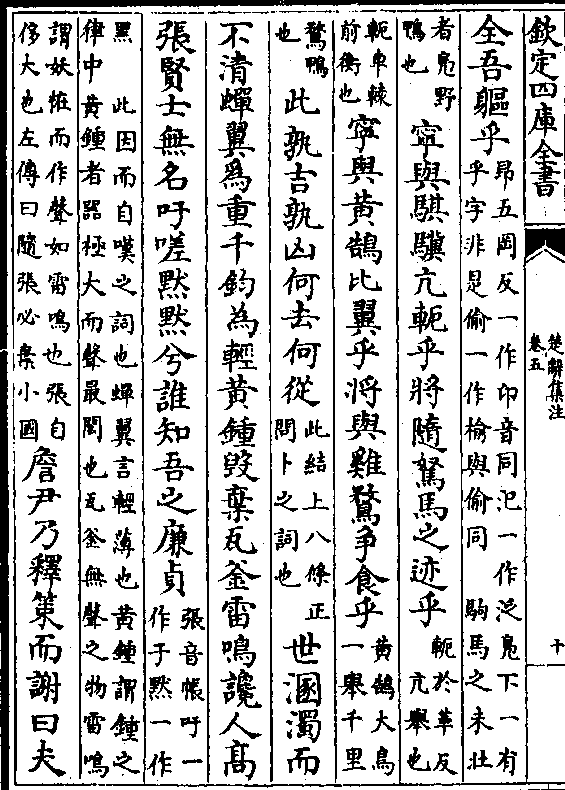 欽定四庫全書
楚辭集注
卷五
十
全吾軀乎
昂五岡反一作卬音同氾一作泛鳬下一有
乎字非是偷一作揄與偷同 駒馬之未壯
者鳬野
鴨也
寧與騏驥亢軛乎將隨駑馬之迹乎
軛於革反
亢舉也
軛車轅
前衡也
寧與黃鵠比翼乎將與雞鶩爭食乎
黃鵠大鳥
一舉千里
鶩鴨
也
此孰吉孰凶何去何從
此結上八條正
問卜之詞也
世溷濁而
不清蟬翼為重千鈞為輕黃鍾毀棄瓦釜雷鳴讒人髙
張賢士無名吁嗟黙黙兮誰知吾之廉貞
張音帳吁一
作于黙一作
黑 此因而自嘆之詞也蟬翼言輕薄也黃鍾謂鍾之
律中黃鍾者器極大而聲最閎也瓦釜無聲之物雷鳴
謂妖怪而作聲如雷鳴也張自
侈大也左傳曰隨張必棄小國
詹尹乃釋策而謝曰夫